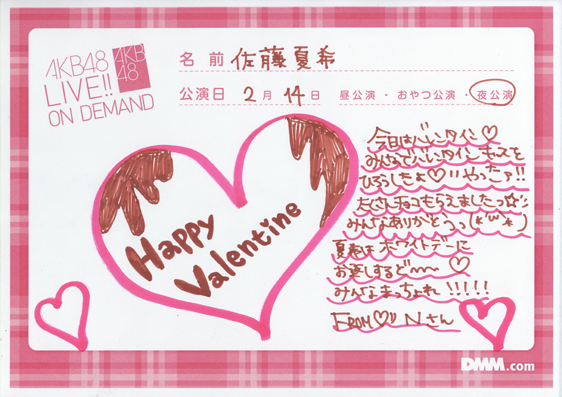 AKB48
LIVE!!
ON DEMAND
AKB
48
名 前 佐藤夏希
公演日 2月 14日 昼公演・おやつ公演・夜公演
Happy
Valentine
今日はバレンタイン♡
みんなでバレンタインキッスを
ひろうしたよ♡いやったァ!!
たくさんチョコもらえましたっ☆
みんなありがとうっ(*'w'*)
夏希はホワイトデーに
お返しするど〜 ♡
みんなまっちょれ!!!!!
FROM♡ Nさん
DMM.com